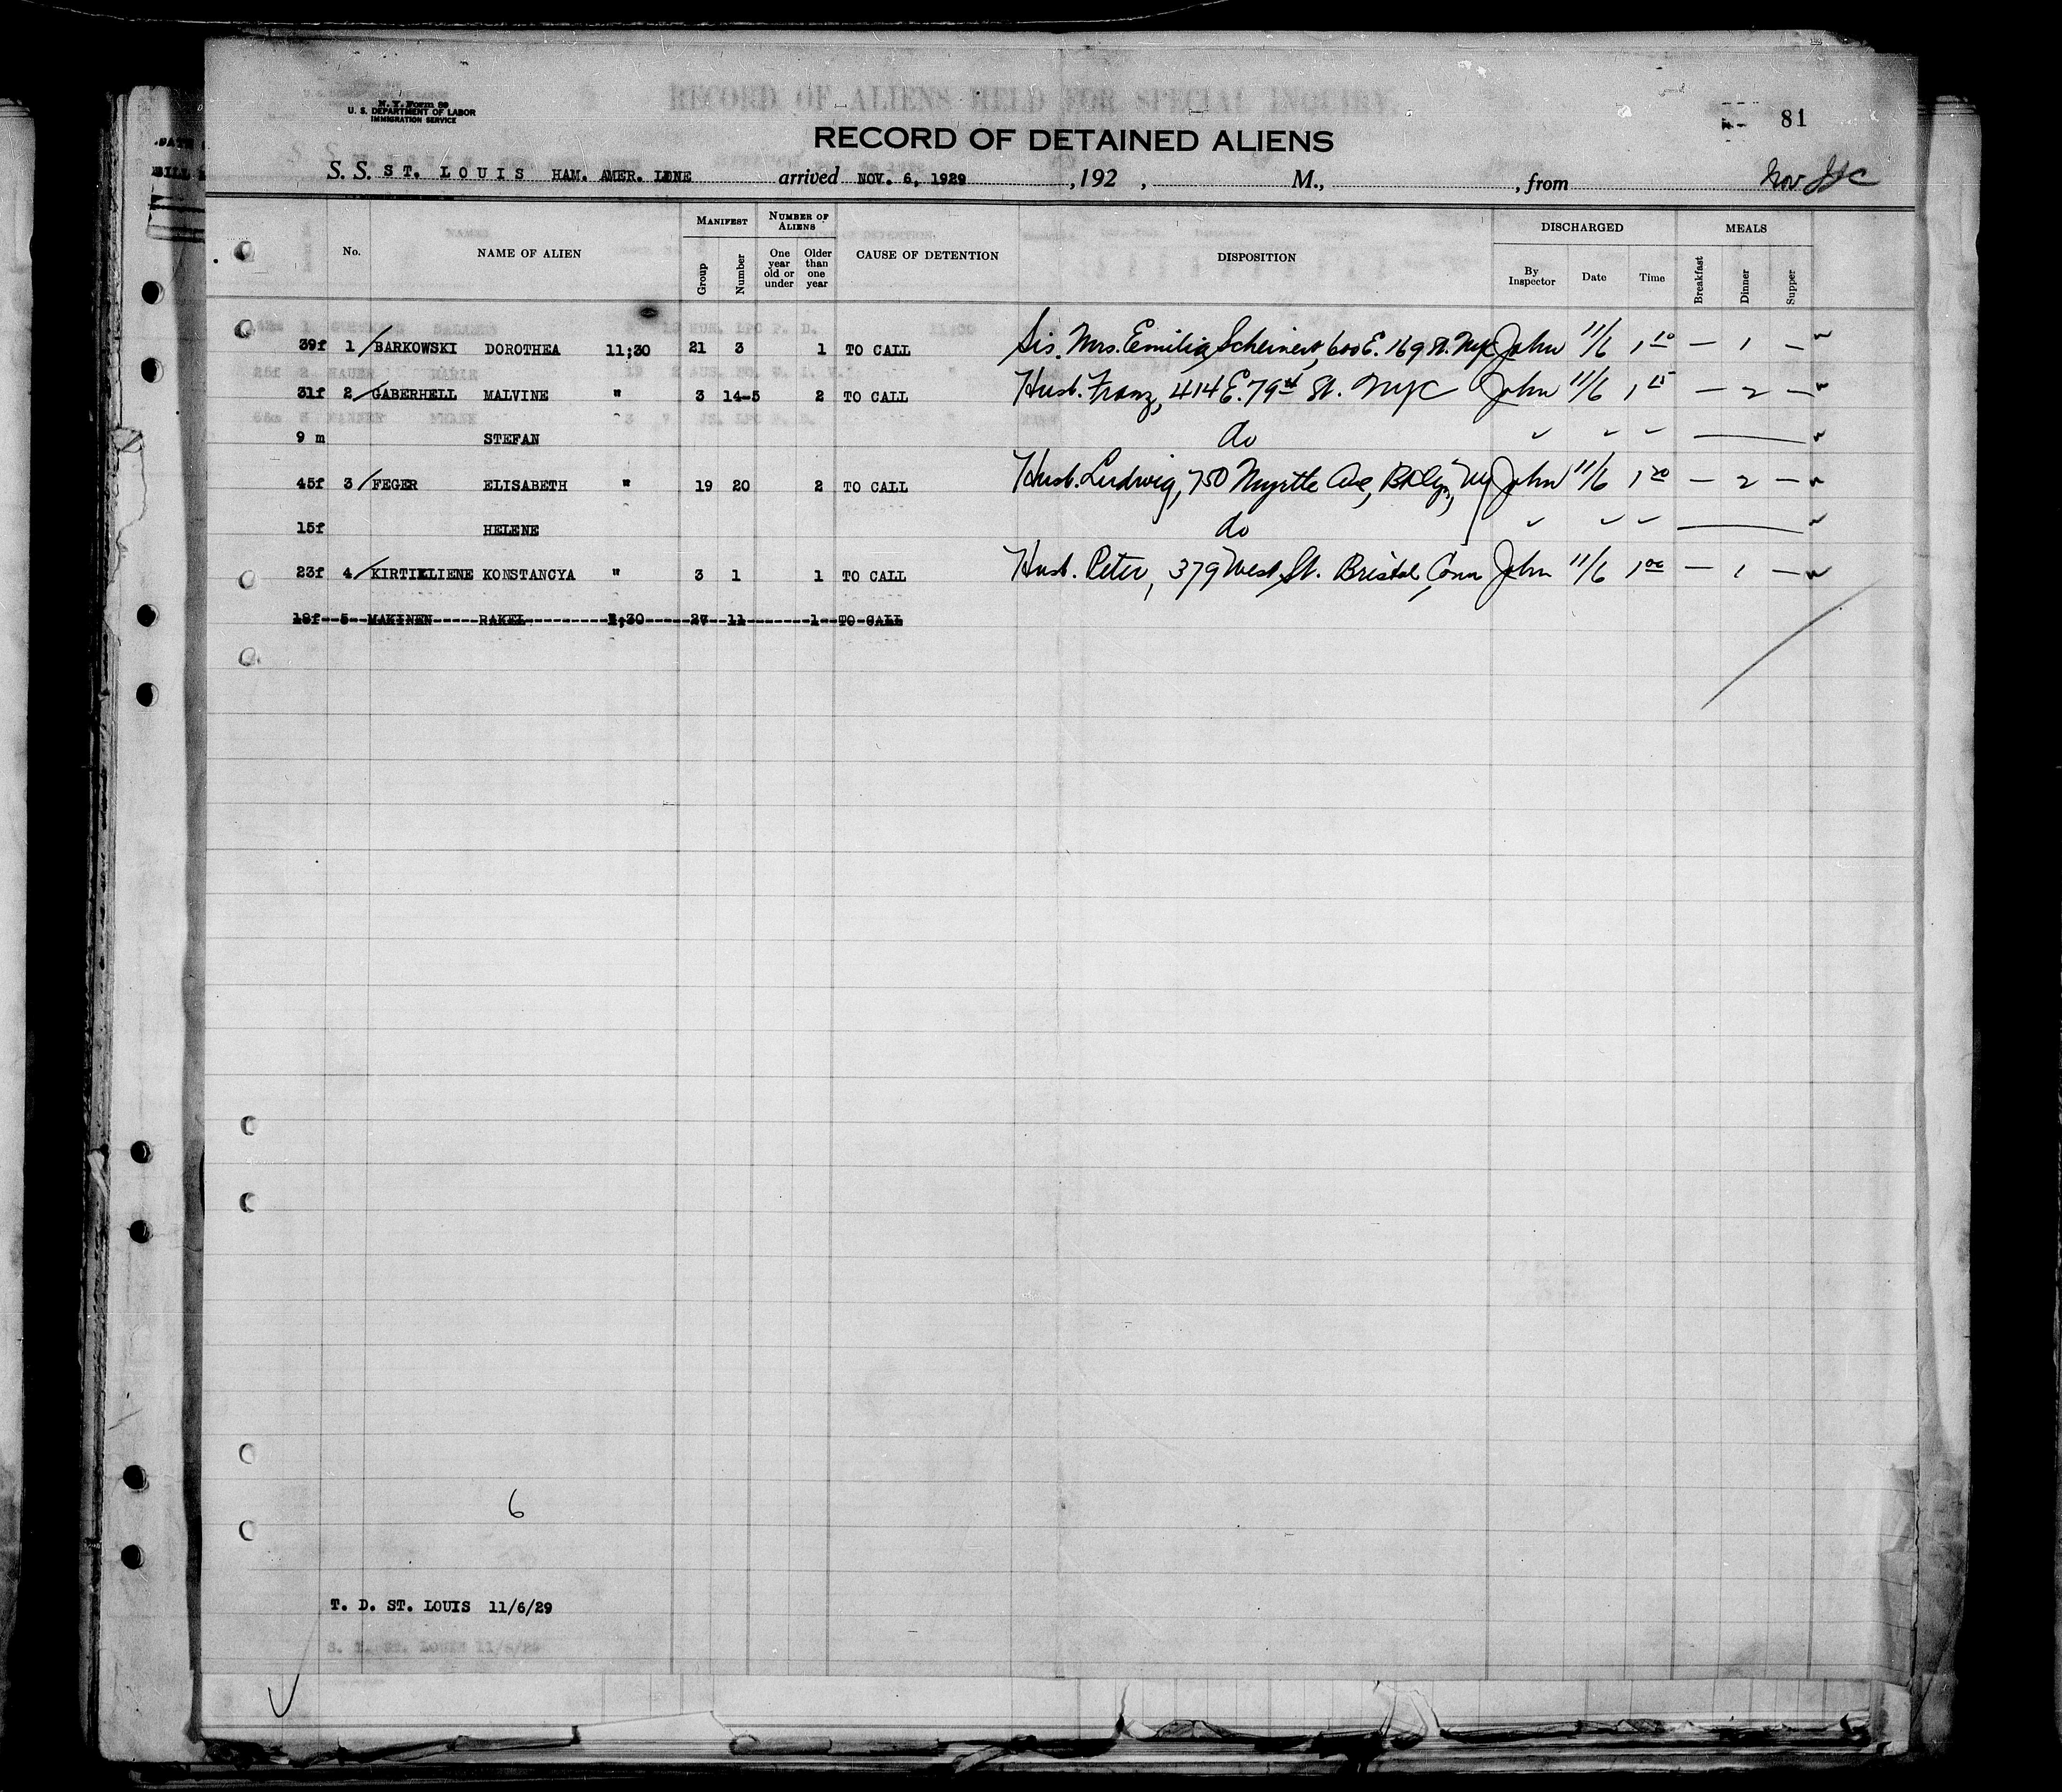 N. Y. Form 89
U. S. DEPARTMENT OF LABOR
IMMIGRATION SERVICE
RECORD OF ALIENS HELD FOR SPECIAL INQUIRY.
81
RECORD OF DETAINED ALIENS
S. S. ST. LOUIS HAM. AMER. LINE arrived NOV. 6, 1929, 192 , M., , from Nov
No. NAME OF ALIEN MANIFEST Group Number NUMBER OF ALIENS One year old or under Older than one year CAUSE OF DETENTION DISPOSITION DISCHARGED By Inspector Date Time MEALS Breakfast Dinner Supper
39f 1 BARKOWSKI DOROTHEA 11;30 21 3 1 TO CALL Sis. Mrs. Emilia Scheinert, 600 E. 169 St. NYC John 11/6 1 10 — 1 —
31f 2 GABERHELL MALVINE " 3 14-5 2 TO CALL Husb. Franz, 414 E. 79th St. NYC John 11/6 1 15 — 2 —
9 m STEFAN do ✓ ✓ ✓
45f 3 FEGER ELISABETH " 19 20 2 TO CALL Husb. Ludwig, 750 Myrtle Ave, Bklyn, Ny John 11/6 1 20 — 2 —
15f HELENE do ✓ ✓ ✓
23f 4 KIRTIKLIENE KONSTANCYA " 3 1 1 TO CALL Husb. Peter, 379 West St. Bristol, Conn John 11/6 1 00 — 1 —
18f--5--MAKINEN-----RAKEL---------1;30-----27--11-------1--TO-CALL
6
T. D. ST. LOUIS 11/6/29
S. I. ST. LOUIS 11/6/29